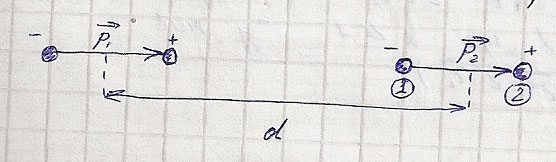 - p₁ + - p₂ +
① ②
d